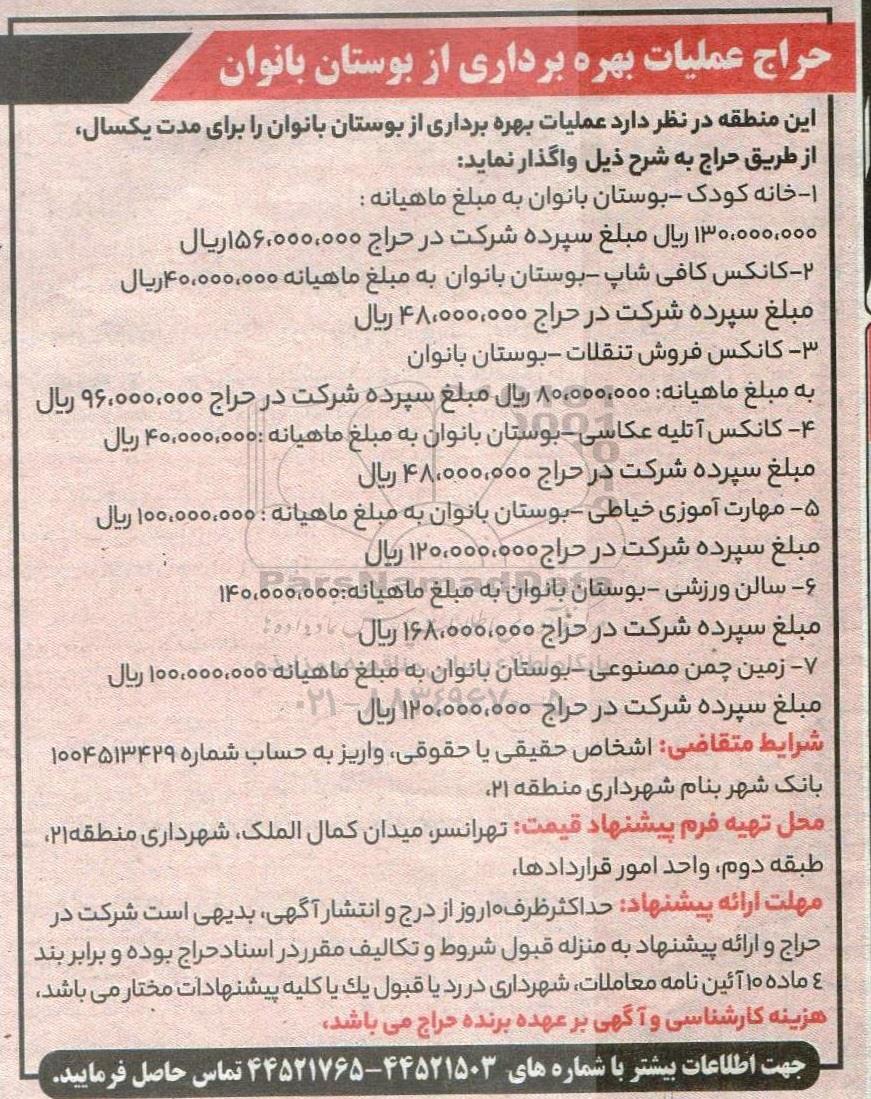 حراج عملیات بهره برداری از بوستان بانوان
این منطقه در نظر دارد عملیات بهره برداری از بوستان بانوان را برای مدت یکسال،
از طریق حراج به شرح ذیل واگذار نماید:
۱-خانه کودک -بوستان بانوان به مبلغ ماهیانه :
۱۳۰،۰۰۰،۰۰۰ ریال مبلغ سپرده شرکت در حراج ۱۵۶،۰۰۰،۰۰۰ریال
۲-کانکس کافی شاپ -بوستان بانوان به مبلغ ماهیانه ۴۰،۰۰۰،۰۰۰ریال
مبلغ سپرده شرکت در حراج ۴۸،۰۰۰،۰۰۰ ریال
۳- کانکس فروش تنقلات -بوستان بانوان
به مبلغ ماهیانه: ۸۰،۰۰۰،۰۰۰ ریال مبلغ سپرده شرکت در حراج ۹۶،۰۰۰،۰۰۰ ریال
۴- کانکس آتلیه عکاسی-بوستان بانوان به مبلغ ماهیانه :۴۰،۰۰۰،۰۰۰ ریال
مبلغ سپرده شرکت در حراج ۴۸،۰۰۰،۰۰۰ ریال
۵- مهارت آموزی خیاطی -بوستان بانوان به مبلغ ماهیانه : ۱۰۰،۰۰۰،۰۰۰ ریال
مبلغ سپرده شرکت در حراج۱۲۰،۰۰۰،۰۰۰ ریال
ParsNamadData
۶- سالن ورزشی -بوستان بانوان به مبلغ ماهیانه:۱۴۰،۰۰۰،۰۰۰
مبلغ سپرده شرکت در حراج ۱۶۸،۰۰۰،۰۰۰ ریال
۷- زمین چمن مصنوعی -بوستان بانوان به مبلغ ماهیانه ۱۰۰،۰۰۰،۰۰۰ ریال
مبلغ سپرده شرکت در حراج ۱۲۰،۰۰۰،۰۰۰ ریال
شرایط متقاضی: اشخاص حقیقی یا حقوقی، واریز به حساب شماره ۱۰۰۴۵۱۳۴۲۹
بانک شهر بنام شهرداری منطقه ۲۱،
محل تهیه فرم پیشنهاد قیمت: تهرانسر، میدان کمال الملک، شهرداری منطقه۲۱،
طبقه دوم، واحد امور قراردادها،
مهلت ارائه پیشنهاد: حداکثرظرف۱۰روز از درج و انتشار آگهی، بدیهی است شرکت در
حراج و ارائه پیشنهاد به منزله قبول شروط و تکالیف مقرردر اسنادحراج بوده و برابر بند
٤ ماده ۱۰ آئین نامه معاملات، شهرداری در رد یا قبول یك یا کلیه پیشنهادات مختار می باشد،
هزینه کارشناسی و آگهی بر عهده برنده حراج می باشد،
جهت اطلاعات بیشتر با شماره های ۴۴۵۲۱۵۰۳-۴۴۵۲۱۷۶۵ تماس حاصل فرمایید.